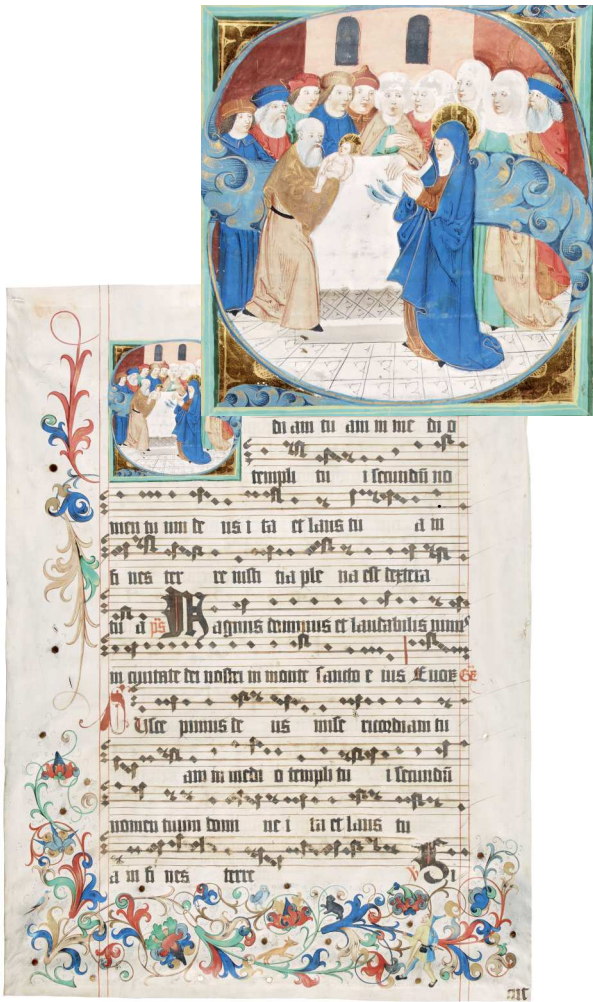 di am tu am in me di o
templi tu i secundū no
men tu um de us i ta et laus tu a in
fi nes ter re iusti tia ple na est dextera
tu a ps Magnus dominus et laudabilis nimis
in ciuitate dei nostri in monte sancto e ius Euou Gͤ
Susce pimus de us mise ricordiam tu
am in medi o templi tu i secundū
nomen tuum domi ne i ta et laus tu
a in fi nes terre V Si